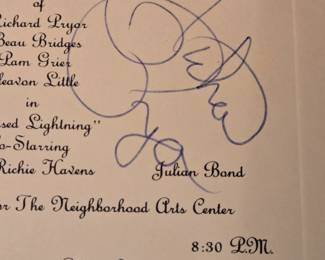 of
Richard Pryor
Beau Bridges
Pam Grier
Cleavon Little
in
sed Lightning"
o-Starring
Richie Havens Julian Bond
or The Neighborhood Arts Center
8:30 P.M.